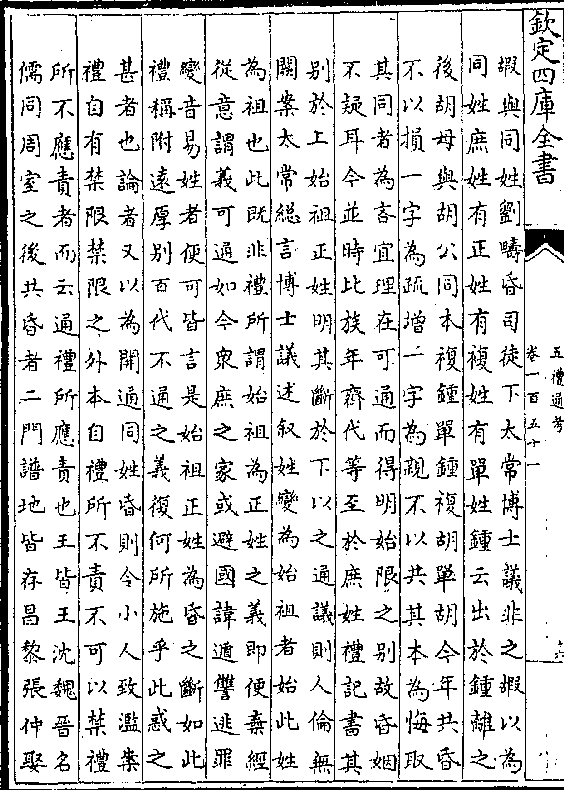 欽定四庫全書
五禮通考
卷一百五十一
嘏與同姓劉疇昏司徒下太常博士議非之嘏以為
同姓庶姓有正姓有複姓有單姓鍾云出於鍾離之
後胡母與胡公同本複鍾單鍾複胡單胡今年共昏
不以損一字為疏增一字為親不以共其本為悔取
其同者為吝宜理在可通而得明始限之别故昏姻
不疑耳今並時比族年齊代等至於庶姓禮記書其
别於上始祖正姓明其斷於下以之通議則人倫無
闕案太常總言博士議述叙姓變為始祖者始此姓
為祖也此既非禮所謂始祖為正姓之義即便棄經
從意謂義可通如今衆庶之家或避國諱遁讐逃罪
變音易姓者便可皆言是始祖正姓為昏之斷如此
禮稱附遠厚别百代不通之義復何所施乎此惑之
甚者也論者又以為開通同姓昏則令小人致濫案
禮自有禁限禁限之外本自禮所不責不可以禁禮
所不應責者而云通禮所應責也王皆王沈魏晉名
儒同周室之後共昏者二門譜地皆存昌黎張仲娶